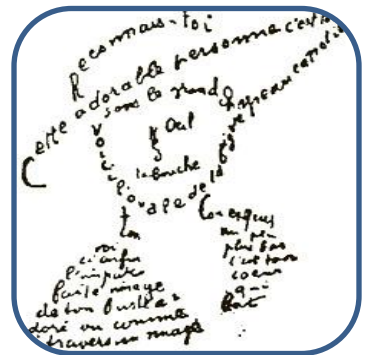 Reconnais-toi
Cette adorable personne c'est toi
sous le grand chapeau canotier
Oeil
la Bouche
Voici l'ovale de ta figure
ton
Cou exquis
voi
ci enfin
l'impar
faite image
de ton buste a
doré vu comme
à travers un nuage
un peu
plus bas
c'est ton
coeur
qui
bat